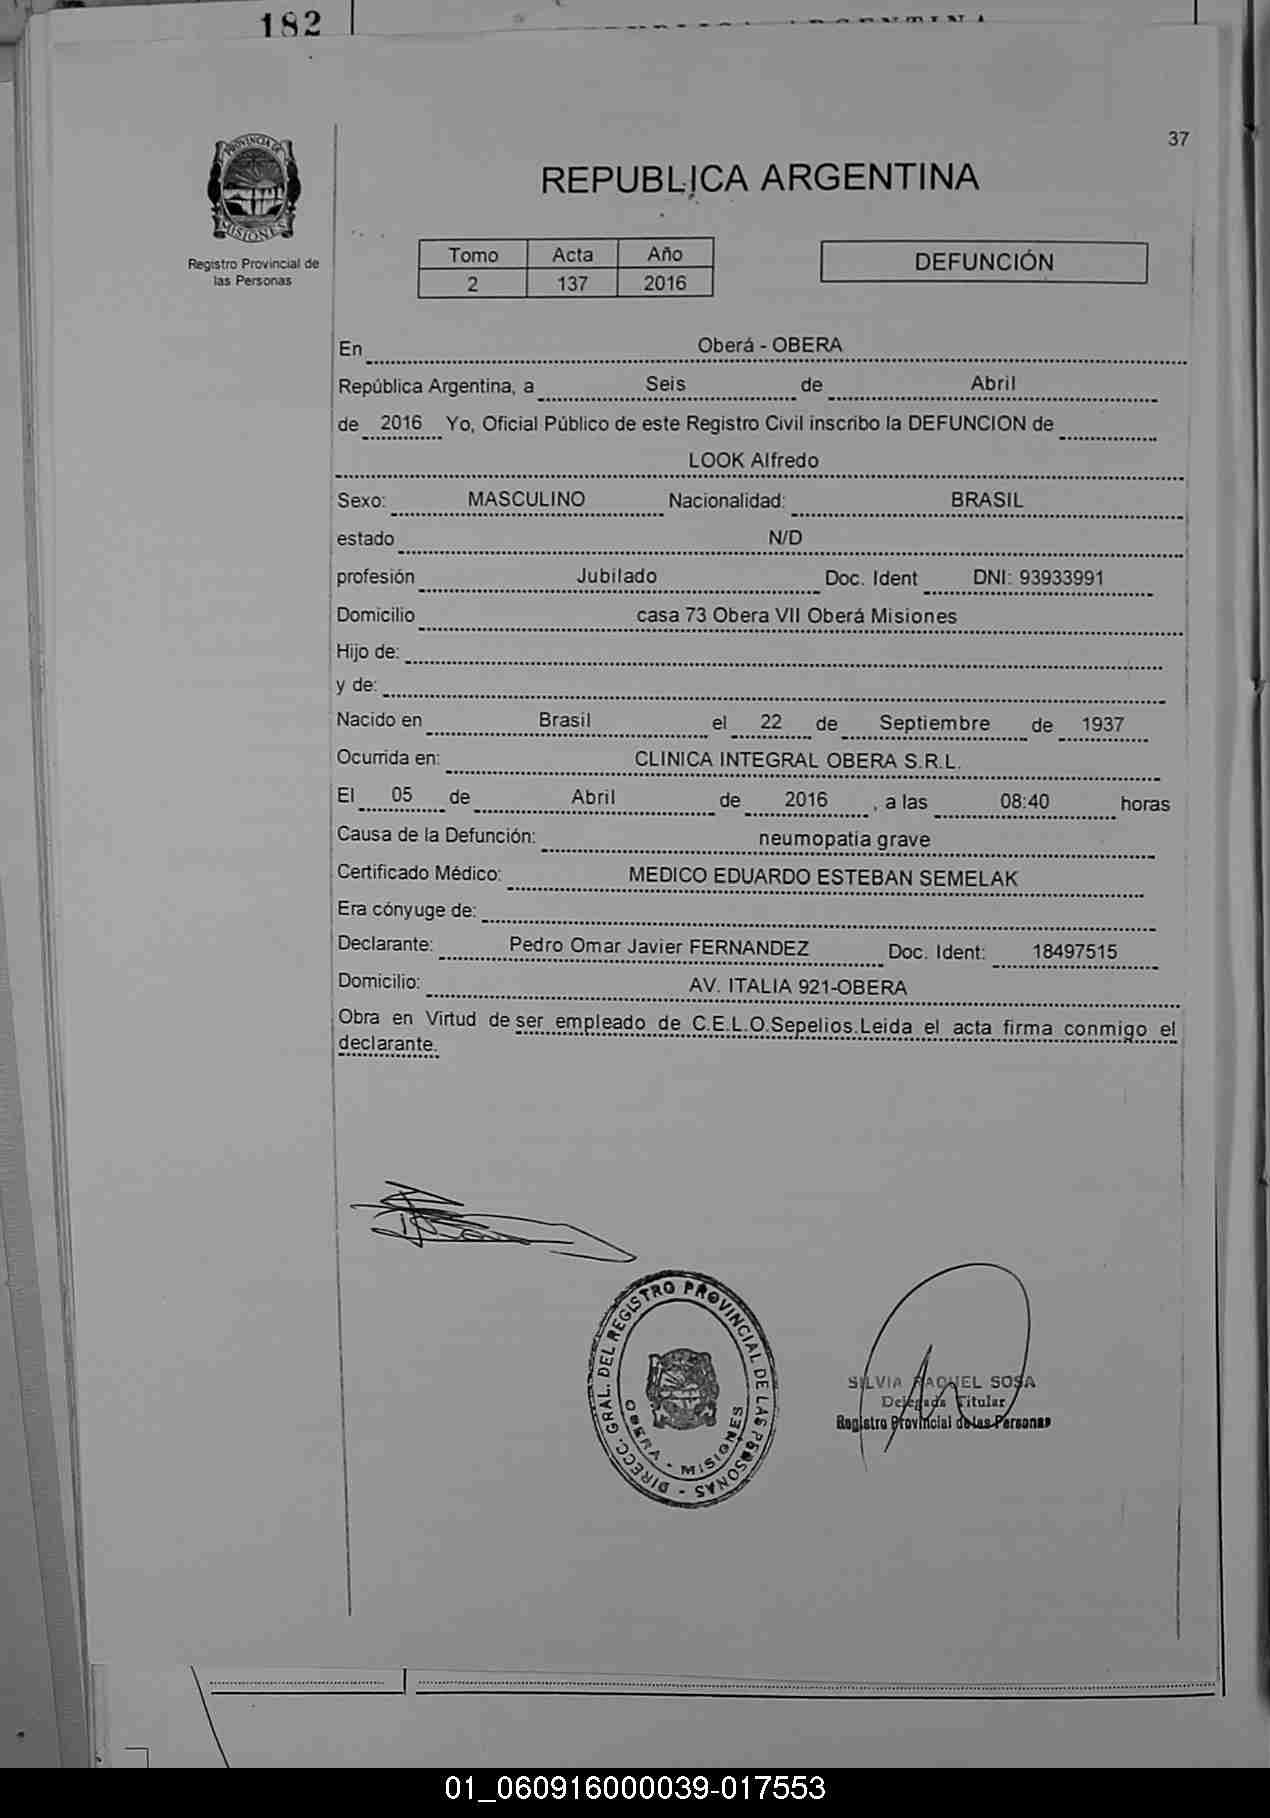 182
37
PROVINCIA DE
MISIONES
Registro Provincial de
las Personas
REPUBLICA ARGENTINA
Tomo Acta Año
2 137 2016
DEFUNCIÓN
En Oberá - OBERA
República Argentina, a Seis de Abril
de 2016 Yo, Oficial Público de este Registro Civil inscribo la DEFUNCION de
LOOK Alfredo
Sexo: MASCULINO Nacionalidad: BRASIL
estado N/D
profesión Jubilado Doc. Ident DNI: 93933991
Domicilio casa 73 Obera VII Oberá Misiones
Hijo de:
y de:
Nacido en Brasil el 22 de Septiembre de 1937
Ocurrida en: CLINICA INTEGRAL OBERA S.R.L.
El 05 de Abril de 2016 , a las 08:40 horas
Causa de la Defunción: neumopatia grave
Certificado Médico: MEDICO EDUARDO ESTEBAN SEMELAK
Era cónyuge de:
Declarante: Pedro Omar Javier FERNANDEZ Doc. Ident: 18497515
Domicilio: AV. ITALIA 921-OBERA
Obra en Virtud de ser empleado de C.E.L.O.Sepelios.Leida el acta firma conmigo el
declarante.
DIRECC. GRAL. DEL REGISTRO PROVINCIAL DE LAS PERSONAS -
OBERA - MISIONES
SILVIA RAQUEL SOSA
Delegada Titular
Registro Provincial de las Personas
01_060916000039-017553